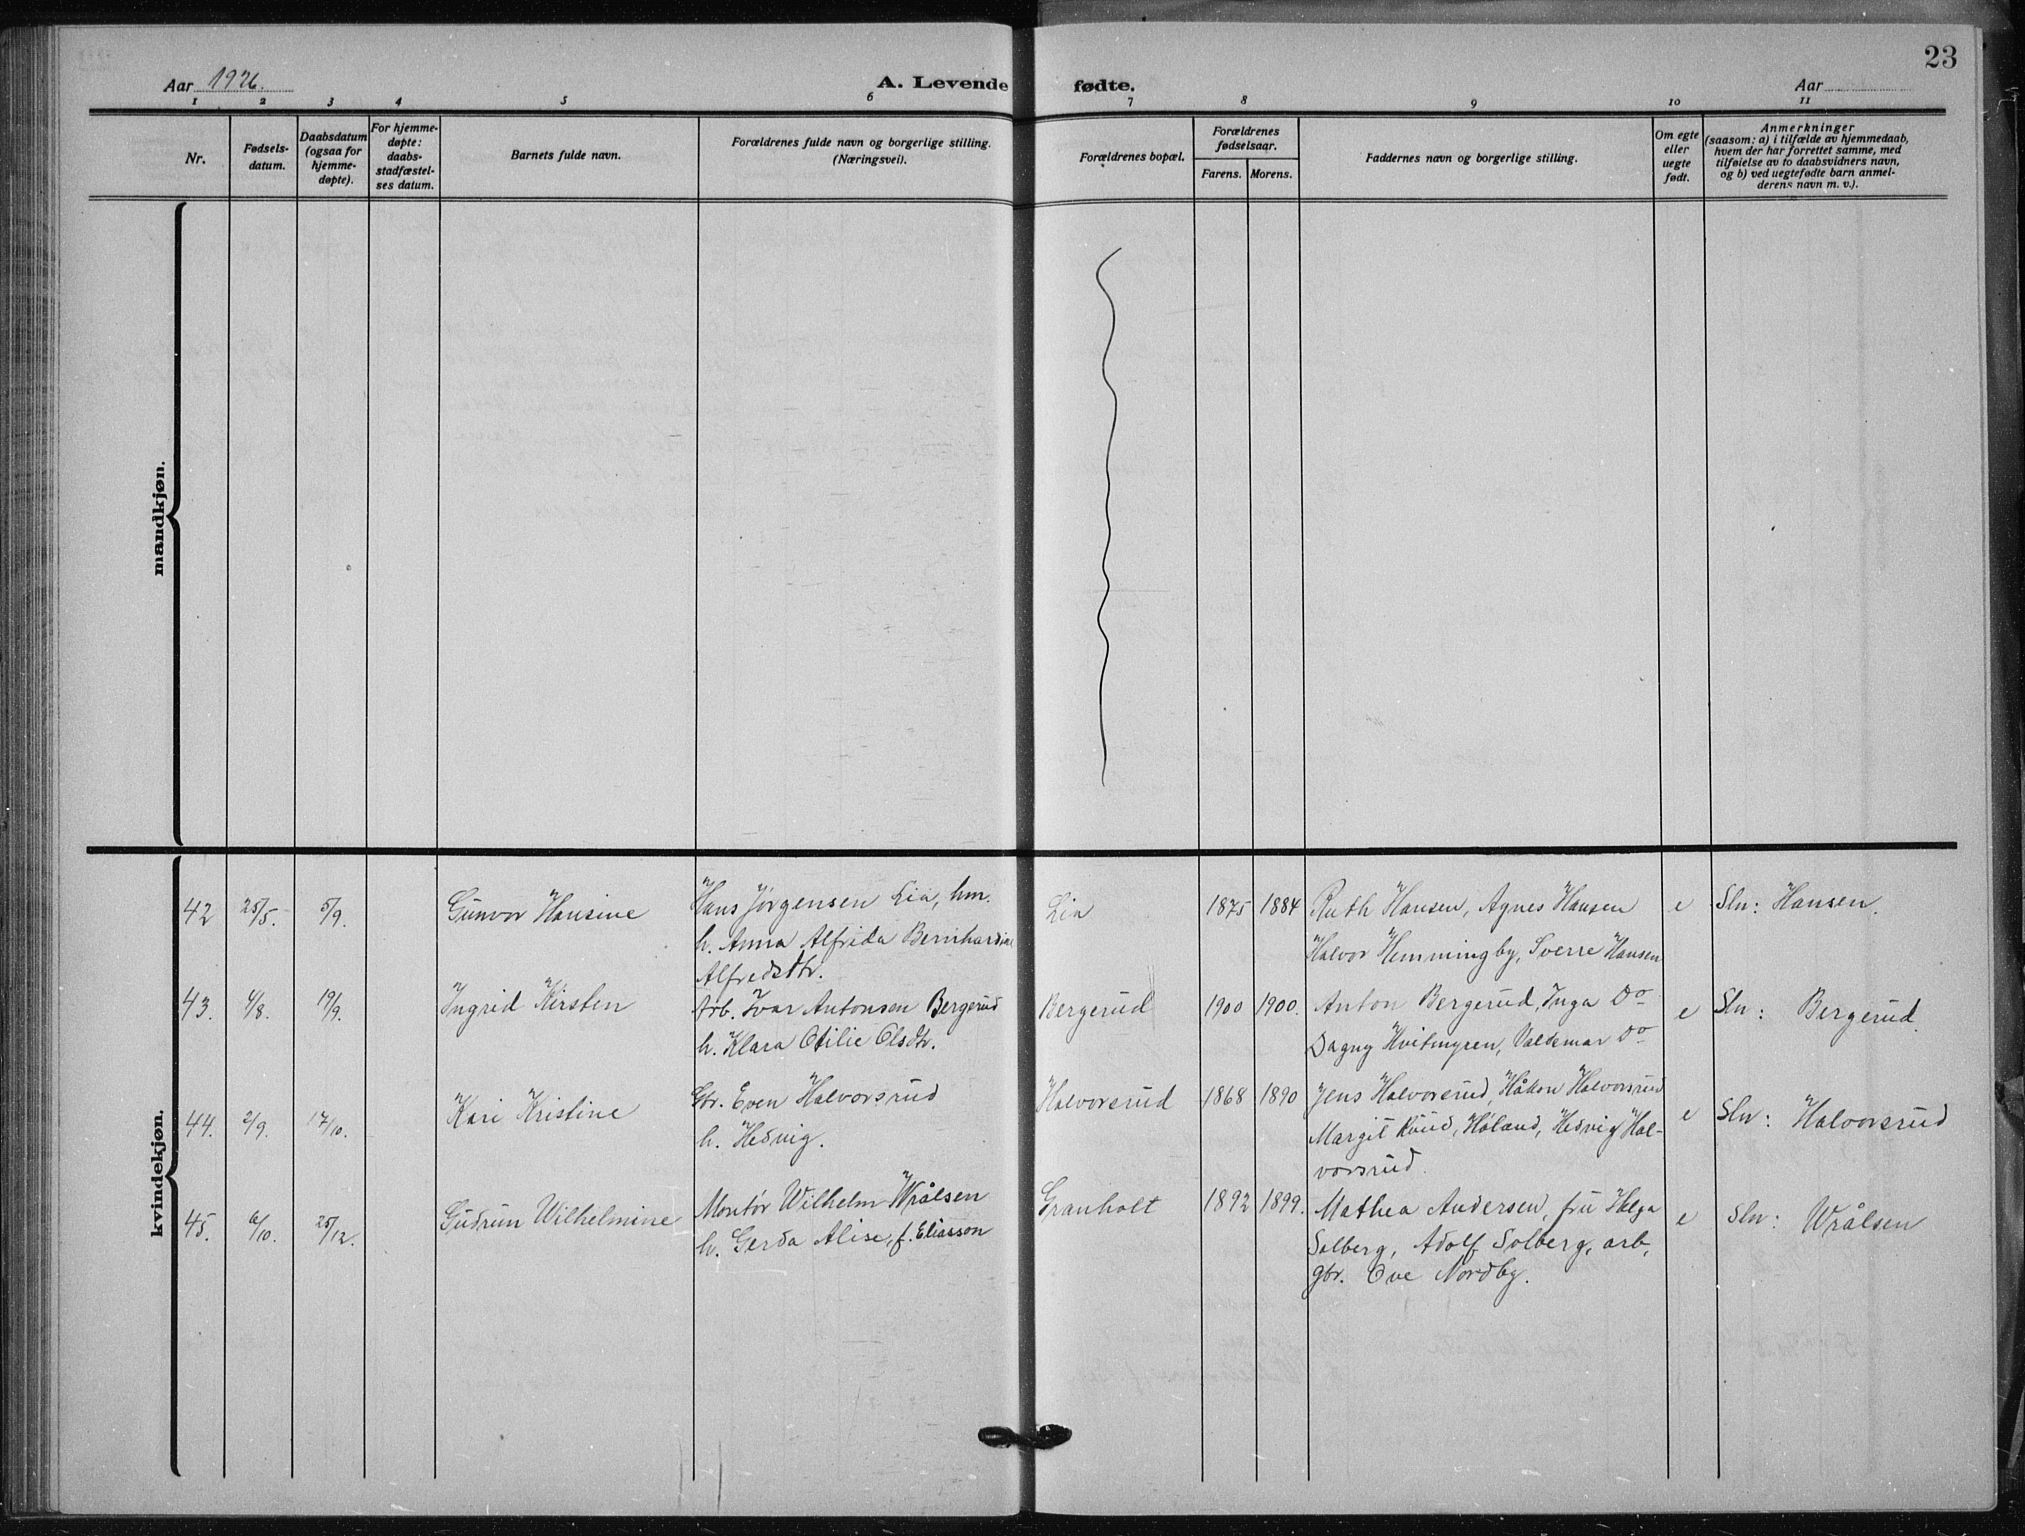 23
Aar 1926. A. Levende fødte. Aar
1 2 3 4 5 6 7 8 9 10 11
Nr.
Fødsels-
datum.
Daabsdatum
(ogsaa for
hjemme-
døpte).
For hjemme-
døpte:
daabs-
stadfæstel-
ses datum.
Barnets fulde navn.
Forældrenes fulde navn og borgerlige stilling.
(Næringsvei).
Forældrenes bopæl.
Forældrenes
fødselsaar.
Farens. Morens.
Faddernes navn og borgerlige stilling.
Om egte
eller
uegte
født.
Anmerkninger
(saasom: a) i tilfælde av hjemmedaab,
hvem der har forrettet samme, med
tilføielse av to daabsvidners navn,
og b) ved uegtefødte barn anmel-
derens navn m. v.).
mandkjøn.
kvindekjøn.
42 25/5. 5/9. Gunvor Hansine
Hans Jørgensen Lia, hm.
h. Anna Alfrida Bernhardine
Alfredsdtr.
Lia 1875 1884
Ruth Hansen, Agnes Hansen
Halvor Hemmingby, Sverre Hansen
e Sln: Hansen.
43. 4/8. 19/9. Ingrid Kirsten
Arb. Ivar Antonsen Bergerud
h. Klara Otilie Olsdtr.
Bergerud 1900 1900.
Anton Bergerud, Inga Do
Dagny Hvitmyren, Valdemar Do
e Sln: Bergerud.
44. 2/9. 17/10. Kari Kristine
Gbr. Even Halvorsrud
h. Hedvig.
Halvorsrud 1868 1890
Jens Halvorsrud, Håkon Halvorsrud
Margit Ruud, Håland, Hedvig Hal-
vorsrud.
e Sln: Halvorsrud
45. 6/10. 25/12. Gudrun Wilhelmine
Montør Wilhelm Wrålsen
h. Gerda Alise, f. Eliasson
Granholt 1892 1899.
Mathea Andersen, fru Helga
Solberg, Adolf Solberg, arb,
gbr. Ove Nordby.
e Sln: Wrålsen